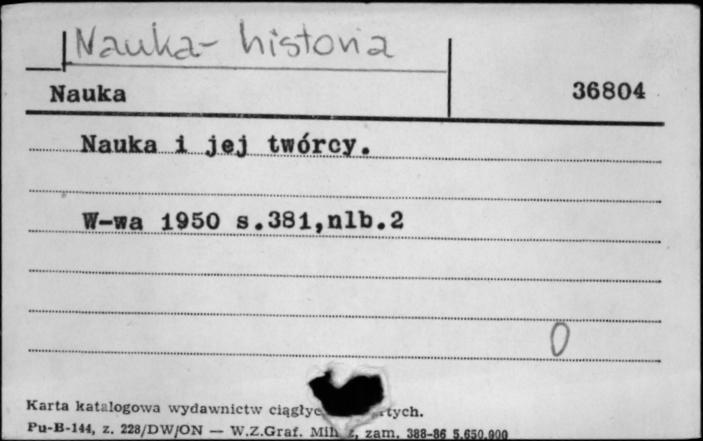 Nauka - historia
Nauka 36804
Nauka i jej twórcy.
W-wa 1950 s.381,nlb.2
0
Karta katalogowa wydawnictw
Pu-B-144, z. 228/DW/ON — W.Z.Graf. zam. 388-86 5.650.000